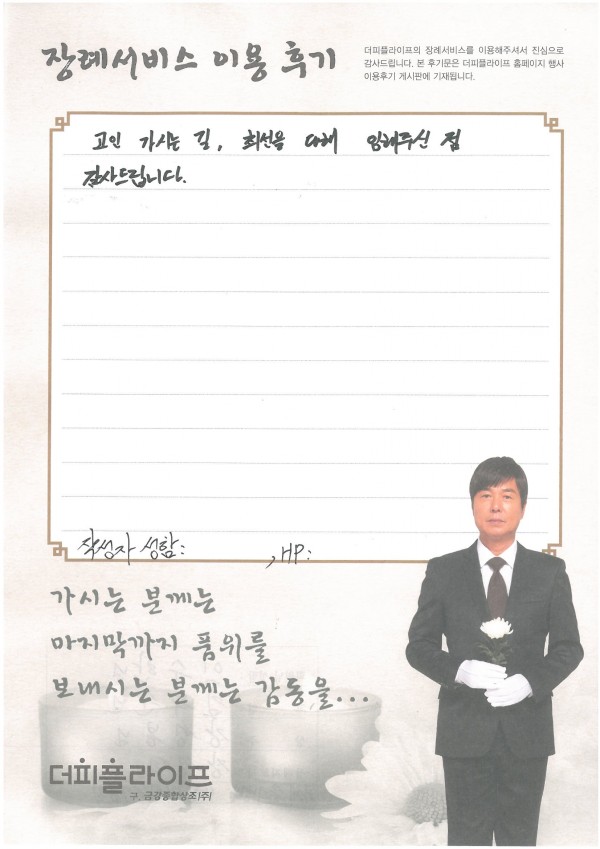 장례서비스 이용 후기
더피플라이프의 장례서비스를 이용해주셔서 진심으로
감사드립니다. 본 후기문은 더피플라이프 홈페이지 행사
이용후기 게시판에 기재됩니다.
고인 가시는 길, 최선을 다해 임해주신 점
감사드립니다.
작성자 성함: , HP:
가시는 분께는
마지막까지 품위를
보내시는 분께는 감동을...
더피플라이프
구. 금강종합상조(주)